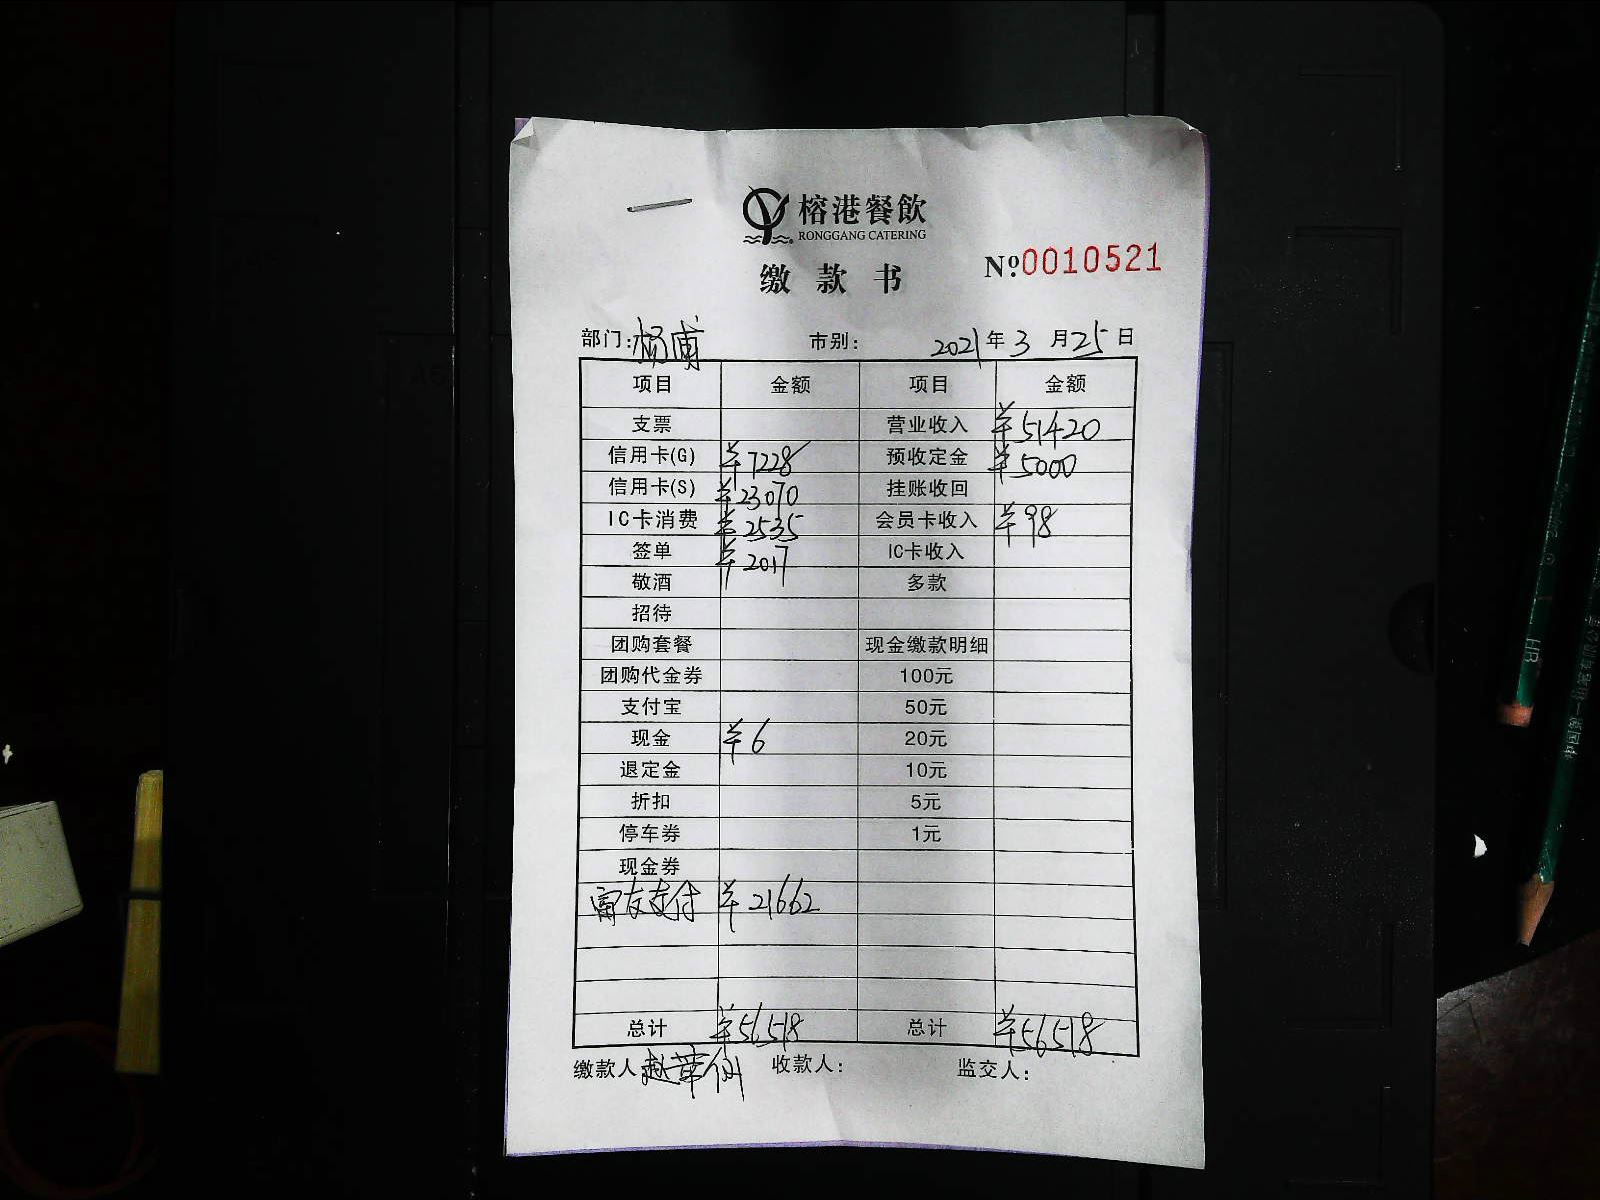 榕港餐飲
RONGGANG CATERING
缴款书
Nº.0010521
部门:杨浦 市别: 2021年3月25日
项目 金额 项目 金额
支票 营业收入 ¥51420
信用卡(G) ¥7228 预收定金 ¥5000
信用卡(S) ¥23070 挂账收回
IC卡消费 ¥2535 会员卡收入 ¥98
签单 ¥2017 IC卡收入
敬酒 多款
招待
团购套餐 现金缴款明细
团购代金券 100元
支付宝 50元
现金 ¥6 20元
退定金 10元
折扣 5元
停车券 1元
现金券
富友支付 ¥21662
总计 ¥56518 总计 ¥56518
缴款人 赵 收款人: 监交人:
HB